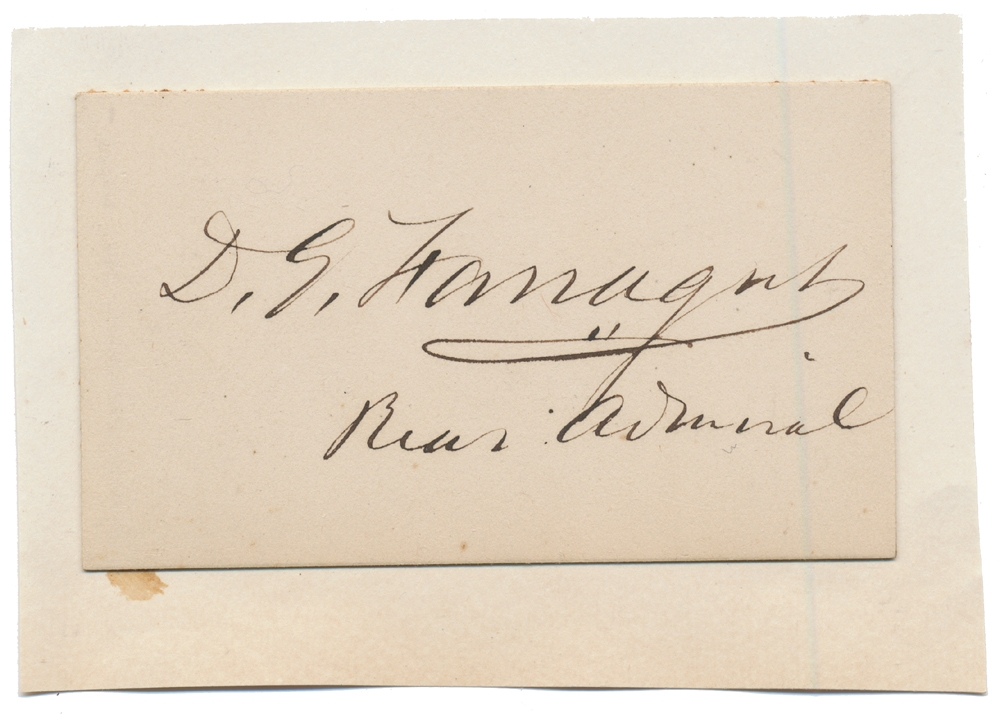 D. G. Farragut
Rear Admiral